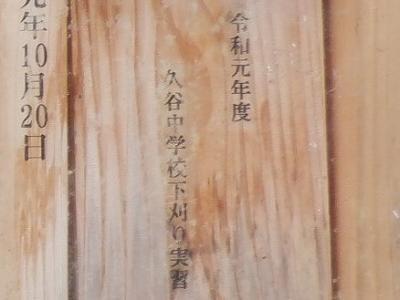 令和元年度
久谷中学校下刈り実習
元年10月20日